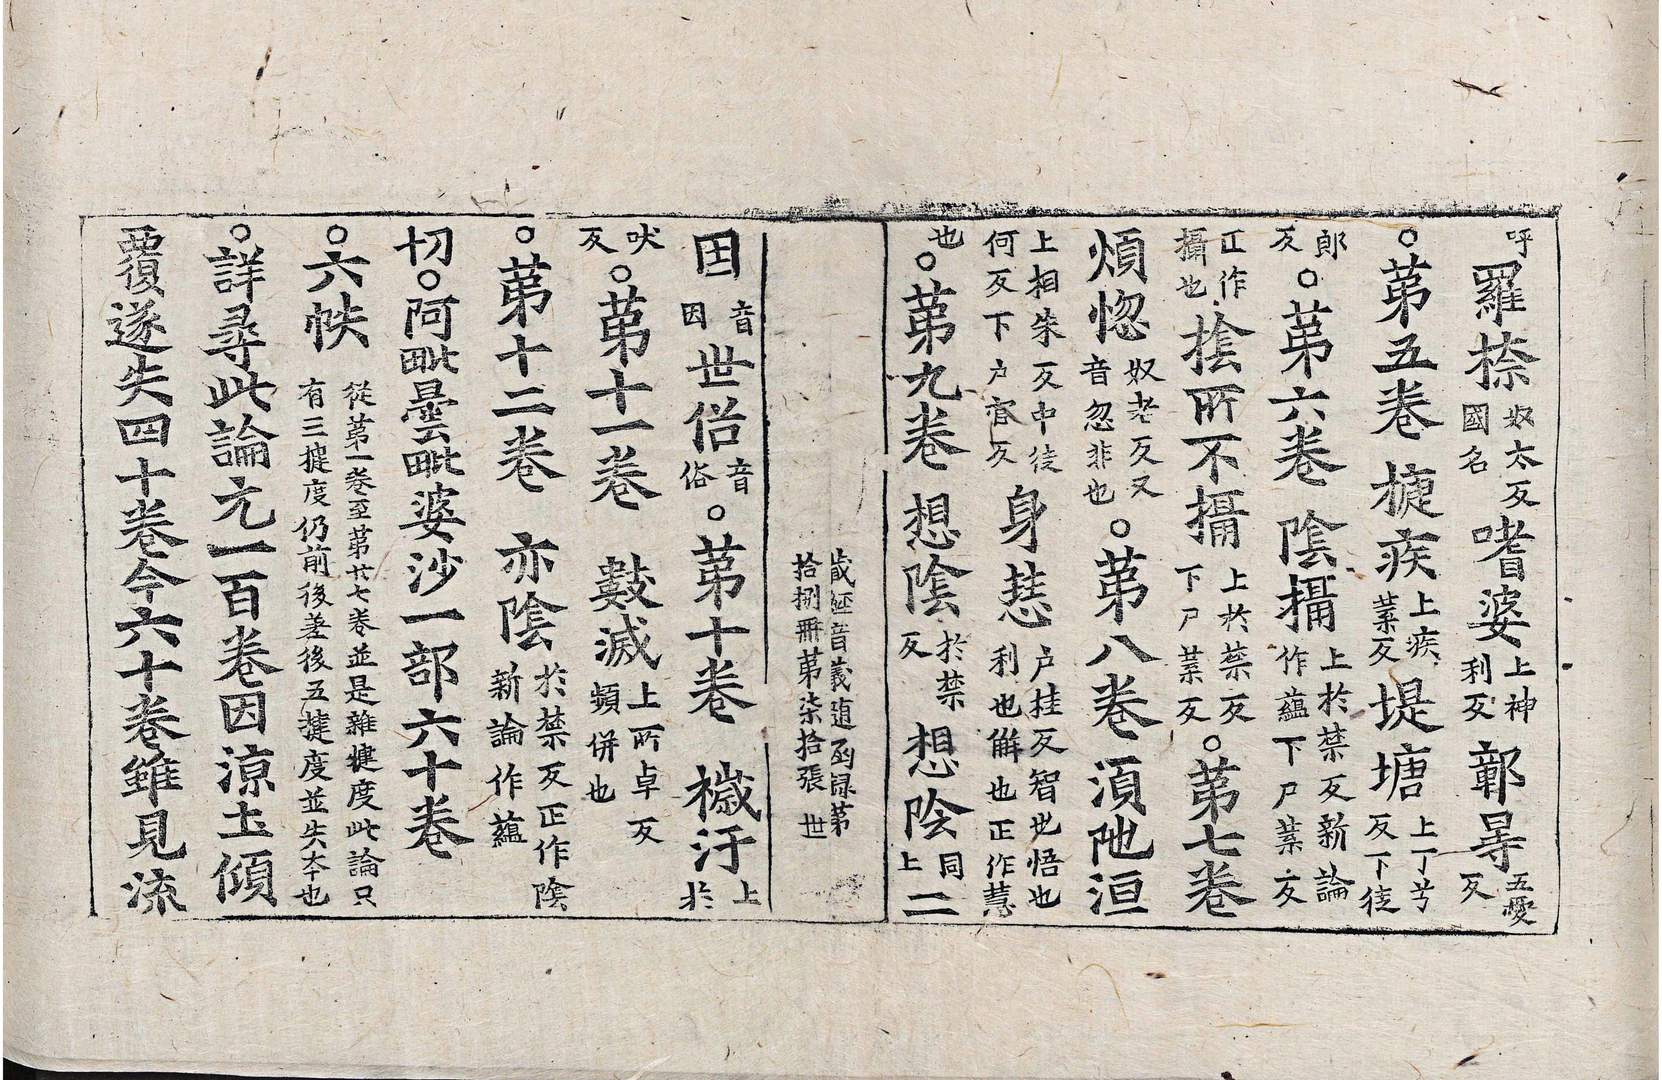 呼羅捺奴太反國名嗜婆上神利反鄿㝵五愛反
○苐五卷　㨗疾上疾葉反堤塘上丁兮反下徒
郎反○苐六卷　陰攝上於禁反新論作蘊下尸葉反
正作攝也捨所不攝上於禁反下尸葉反○苐七卷
煩惚奴老反又音忽非也○苐八卷湏陁洹
上相朱反中徒何反下戸官反身慧戸挂反智也悟也利也解也正作慧
也○苐九卷　想陰於禁反　想陰同上二
歳經音義随函録苐拾捌冊苐柒拾張　世
囯音因世俗音俗○苐十卷　櫗汙上於
吠反○苐十一卷　數滅上所卓反頻併也
○苐十二卷　亦陰於禁反正作陰新論作蘊
切○阿毗曇毗婆沙一部六十卷
○六帙從苐一卷至苐廿七卷並是雜犍度此論只有三揵度仍前後差後五揵度並失夲也
○詳尋此論元一百卷因涼土傾
覆遂失四十卷今六十卷雖見流